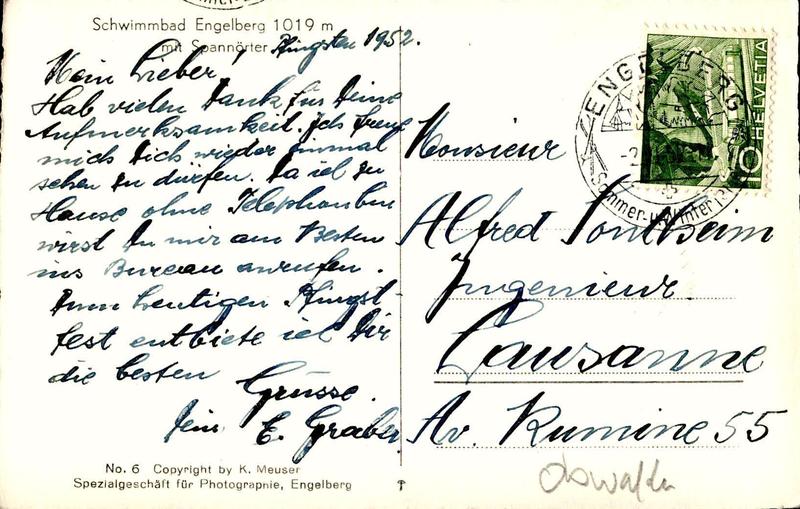 Schwimmbad Engelberg 1019 m
mit Spannörter
Pfingsten 1952.
Mein Lieber!
Hab vielen Dank für Deine
Aufmerksamkeit. Ich freue
mich Dich wieder einmal
sehen zu dürfen. Da ich zu
Hause ohne Telephon bin
wirst Du mir am Besten
ins Bureau anrufen.
Zum heutigen Pfingst-
fest entbiete ich Dir
die besten
Grüsse.
Dein E. Graber.
No. 6 Copyright by K. Meuser
Spezialgeschäft für Photographie, Engelberg
ENGELBERG
Sommer-u. Winter
HELVETIA
10
Monsieur
Alfred Sontheim
Ingenieur
Lausanne
Av. Rumine 55